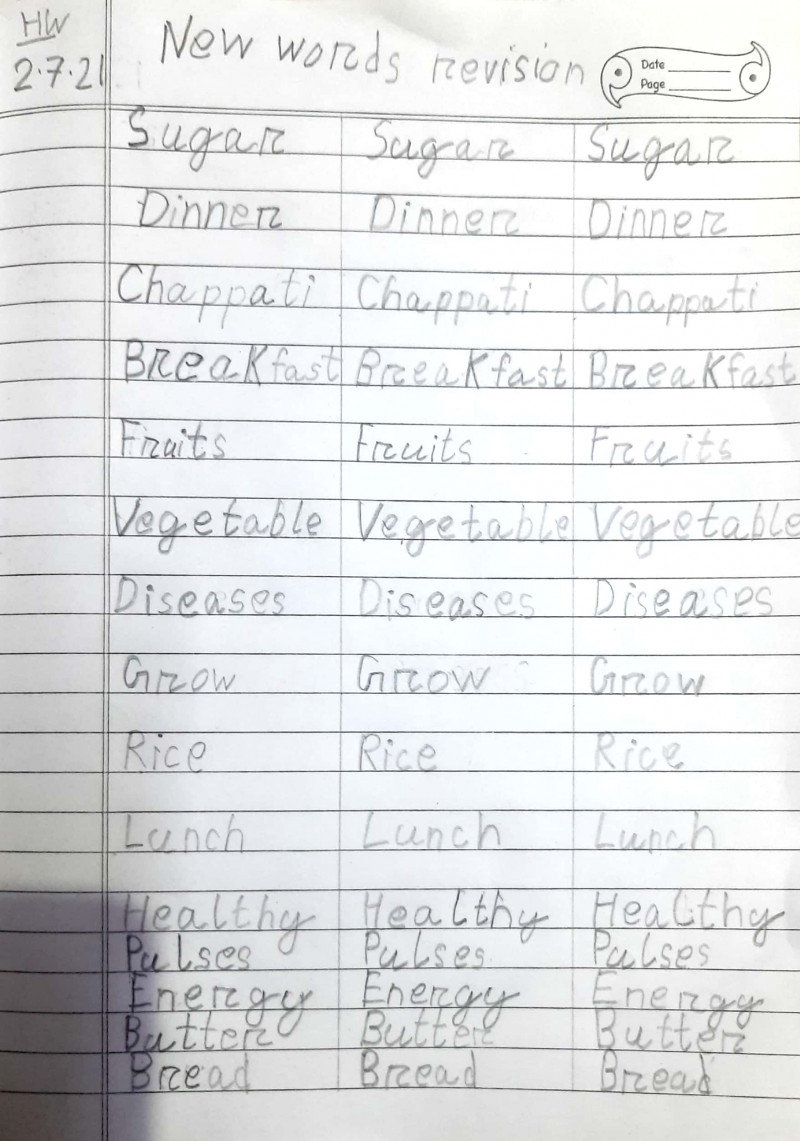 HW
2.7.21
New words revision
Date
Page
Sugar Sugar Sugar
Dinner Dinner Dinner
Chappati Chappati Chappati
Breakfast Breakfast Breakfast
Fruits Fruits Fruits
Vegetable Vegetable Vegetable
Diseases Diseases Diseases
Grow Grow Grow
Rice Rice Rice
Lunch Lunch Lunch
Healthy Healthy Healthy
Pulses Pulses Pulses
Energy Energy Energy
Butter Butter Butter
Bread Bread Bread